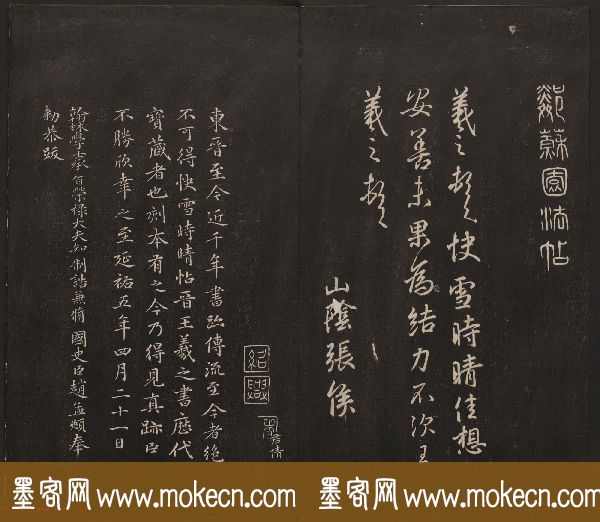 鄰蘇園法帖
羲之頓首快雪時晴佳想
安善未果為結力不次王
羲之頓首
山陰張侯
紹興
東晉至今近千年書跡傳流至今者絕
不可得快雪時晴帖晉王羲之書歷代
寶藏者也刻本有之今乃得見真跡臣
不勝欣幸之至延祐五年四月二十一日
翰林學士承旨榮祿大夫知制誥兼脩國史臣趙孟頫奉
勅恭跋
墨客网 www.mokecn.com 墨客网 www.mokecn.com